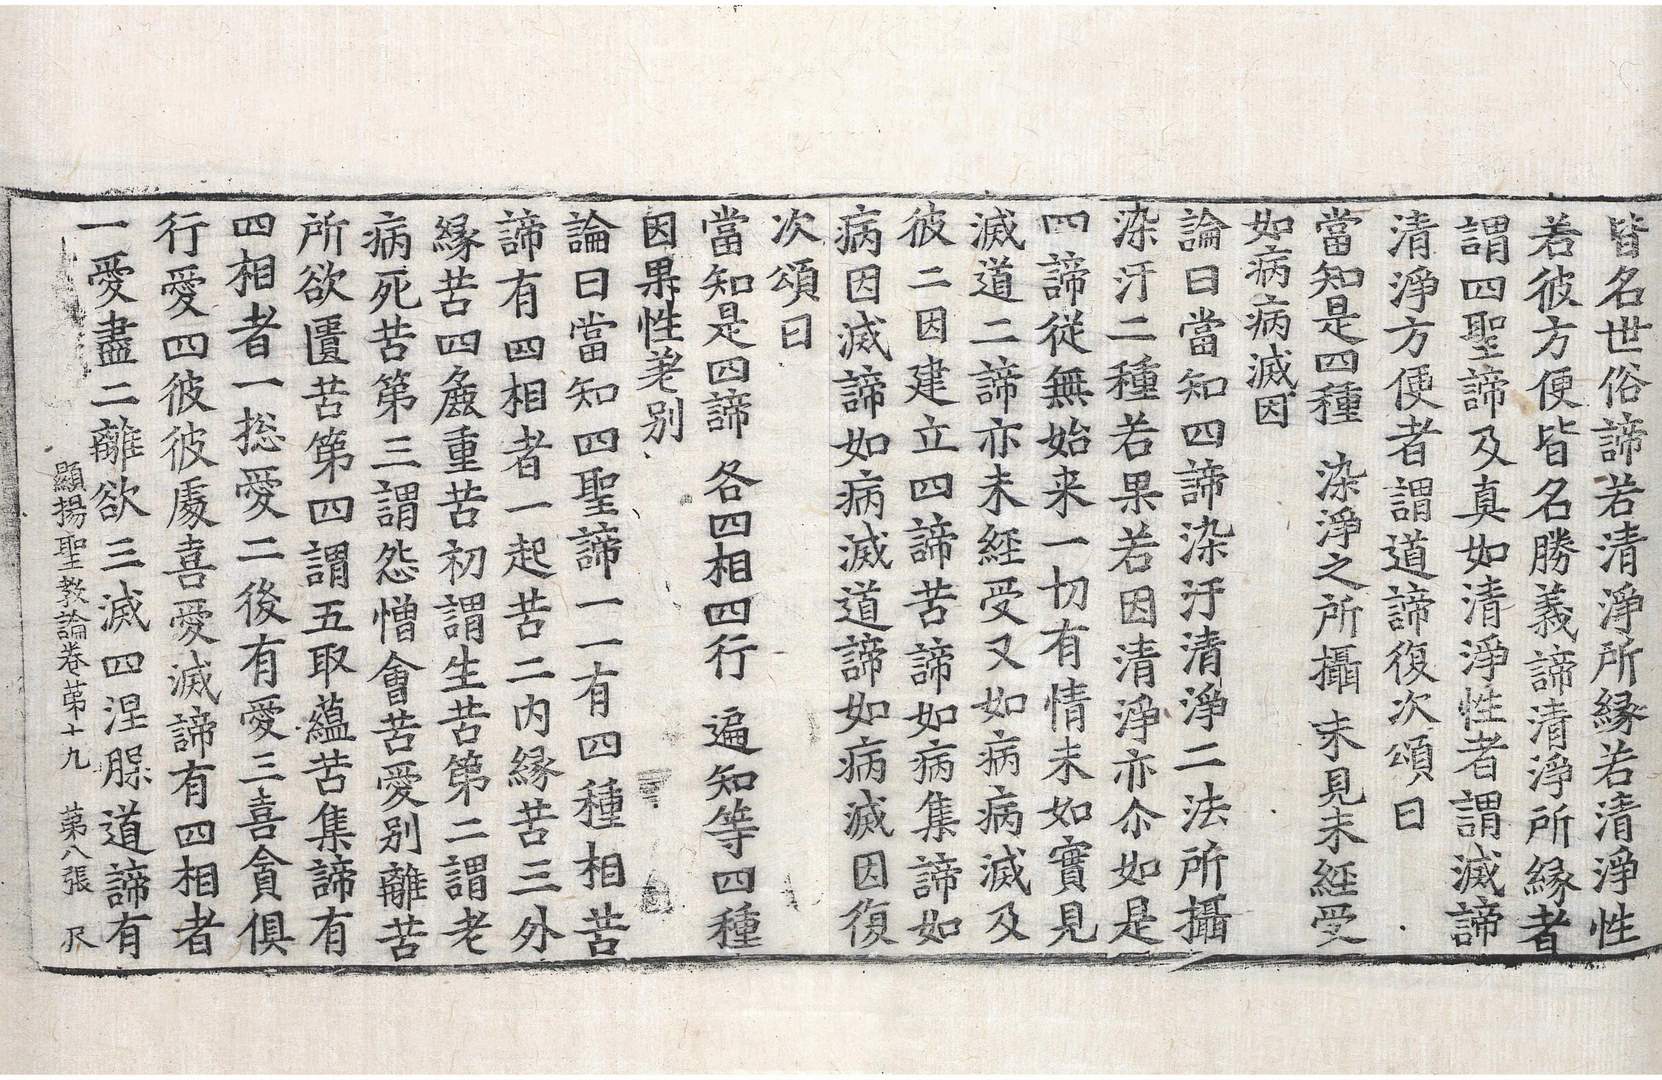 皆名世俗諦若清淨所縁若清淨性
若彼方便皆名勝義諦清淨所縁者
謂四聖諦及真如清淨性者謂滅諦
清淨方便者謂道諦復次頌曰
當知是四種 染淨之所攝 未見未經受
如病病滅因
論曰當知四諦染汙清淨二法所攝
染汙二種若果若因清淨亦尒如是
四諦從無始来一切有情未如實見
滅道二諦亦未經受又如病病滅及
彼二因建立四諦苦諦如病集諦如
病因滅諦如病滅道諦如病滅因復
次頌曰
當知是四諦 各四相四行 遍知等四種
因果性差别
論曰當知四聖諦一一有四種相苦
諦有四相者一起苦二内縁苦三外
縁苦四麁重苦初謂生苦第二謂老
病死苦第三謂怨憎會苦愛別離苦
所欲匱苦第四謂五取蘊苦集諦有
四相者一揔愛二後有愛三喜貪俱
行愛四彼彼處喜愛滅諦有四相者
一愛盡二離欲三滅四涅槃道諦有
顯揚聖教論卷第十九 第八張 尺